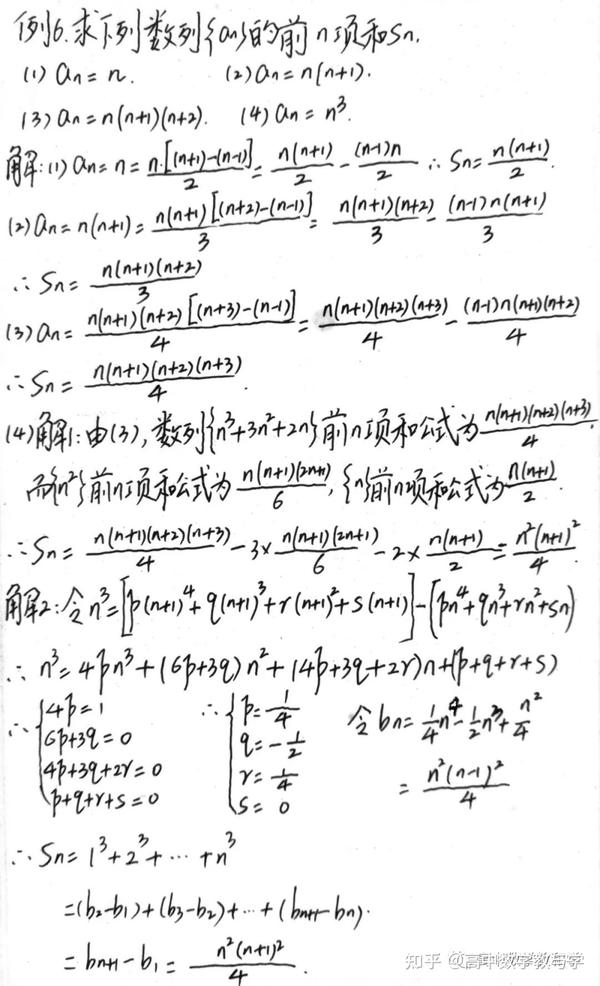 例6.求下列数列{an}的前n项和Sn.
(1) an=n. (2) an=n(n+1).
(3) an=n(n+1)(n+2). (4) an=n³.
解:(1) an=n=n·[(n+1)-(n-1)]/2=n(n+1)/2-(n-1)n/2 ∴Sn=n(n+1)/2.
(2) an=n(n+1)=n(n+1)[(n+2)-(n-1)]/3=n(n+1)(n+2)/3-(n-1)n(n+1)/3
∴Sn=n(n+1)(n+2)/3
(3) an=n(n+1)(n+2)[(n+3)-(n-1)]/4=n(n+1)(n+2)(n+3)/4-(n-1)n(n+1)(n+2)/4
∴Sn=n(n+1)(n+2)(n+3)/4.
(4)解1:由(3),数列{n³+3n²+2n}前n项和公式为n(n+1)(n+2)(n+3)/4.
而{n²}前n项和公式为n(n+1)(2n+1)/6,{n}前n项和公式为n(n+1)/2.
∴Sn=n(n+1)(n+2)(n+3)/4-3×n(n+1)(2n+1)/6-2×n(n+1)/2=n²(n+1)²/4.
解2:令n³=[p(n+1)⁴+q(n+1)³+r(n+1)²+s(n+1)]-(pn⁴+qn³+rn²+sn)
∴n³=4pn³+(6p+3q)n²+(4p+3q+2r)n+(p+q+r+s)
∴{4p=1 ∴{p=1/4 令bn=1/4n⁴-1/2n³+n²/4
6p+3q=0 q=-1/2
4p+3q+2r=0 r=1/4 =n²(n-1)²/4
p+q+r+s=0 s=0
∴Sn=1³+2³+…+n³
=(b₂-b₁)+(b₃-b₂)+…+(bn+1-bn).
=bn+1-b₁=n²(n+1)²/4.
知乎 @高中数学教与学